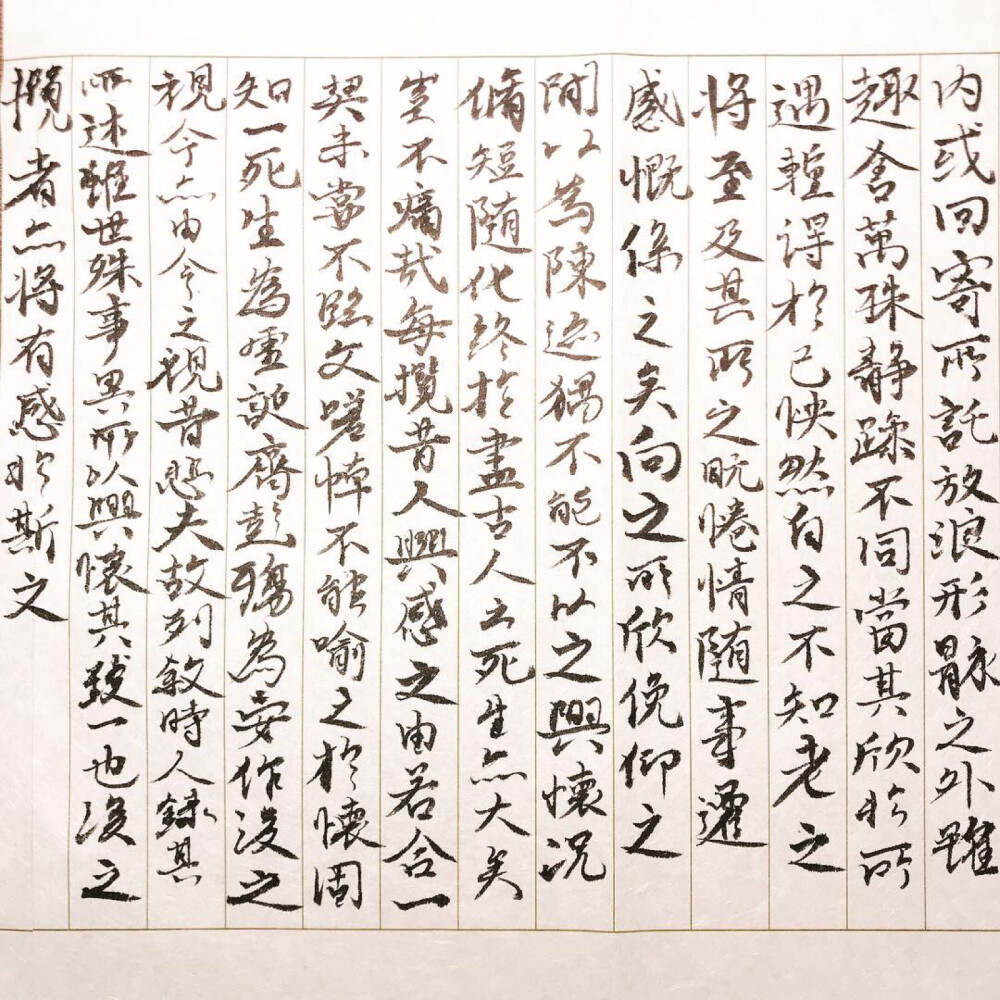 内或因寄所託放浪形骸之外雖
趣舍萬殊靜躁不同當其欣於所
遇蹔得於己怏然自足不知老之
將至及其所之既惓情隨事遷
感慨係之矣向之所欣俛仰之
閒以為陳迹猶不能不以之興懷況
脩短隨化終於盡古人云死生亦大矣
豈不痛哉每攬昔人興感之由若合一
契未嘗不臨文嗟悼不能喻之於懷固
知一死生為虛誕齊彭殤為妄作後之
視今亦由今之視昔悲夫故列敘時人錄其
所述雖世殊事異所以興懷其致一也後之
攬者亦將有感於斯文